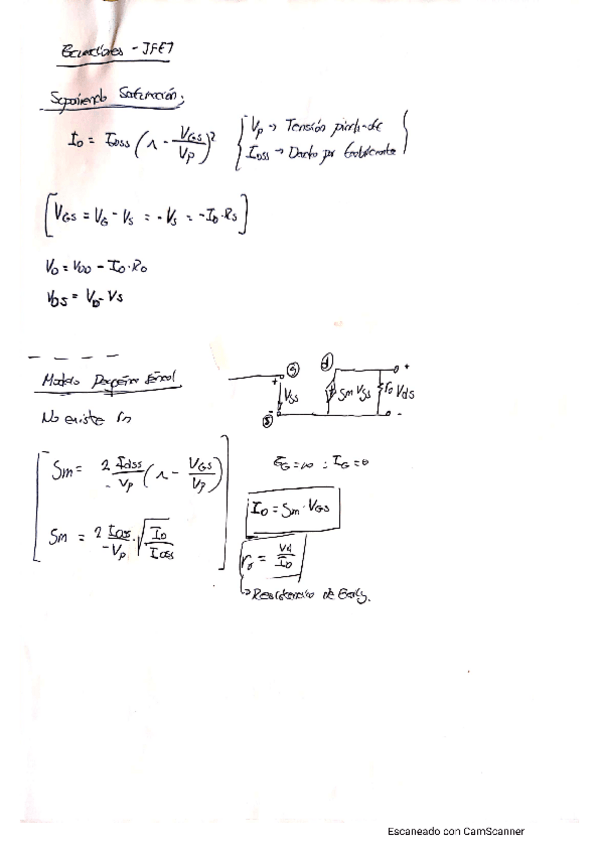 Ecuaciones - JFET
Suponiendo Saturación:
I_D = I_DSS (1 - V_GS/V_P)^2 { V_P → Tensión pinch-off
I_DSS → Dato por fabricante }
[V_GS = V_G - V_S = -V_S = -I_D·R_S]
V_D = V_DD - I_D·R_D
V_DS = V_D - V_S
Modelo Pequeña Señal
No existe
G
S
d
+
-
V_gs
gm V_gs
r_o
V_ds
+
-
gm = 2 I_dss/-V_p (1 - V_GS/V_p)
gm = 2 I_DSS/-V_p · √(I_D/I_DSS)
=∞ ; I_G=0
I_D = gm · V_GS
r_o = Vd/I_D
→ Resistencia de Early.
Escaneado con CamScanner